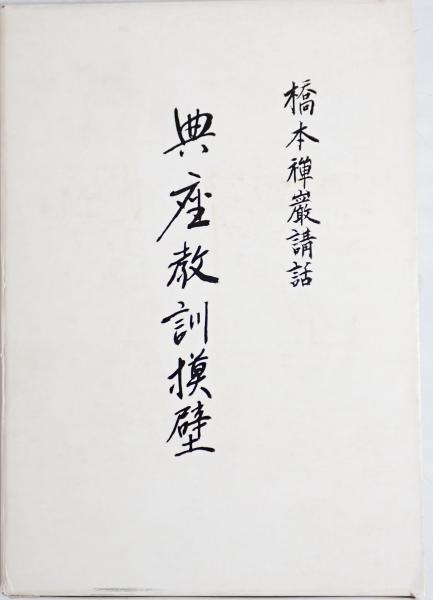 橋本禅巖講話
典座教訓摸壁